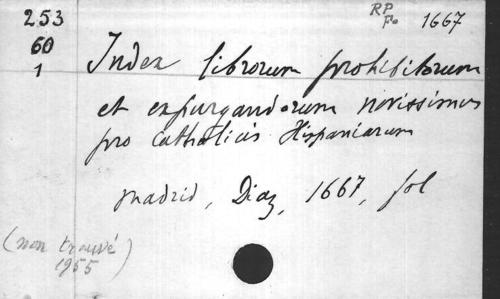 253
60
1
RP
Fo 1667
Index librorum prohibitorum
et expurgandorum novissimus
pro catholicis Hispaniarum
Madrid, Diaz, 1667, fol
(non trouvé)
1955